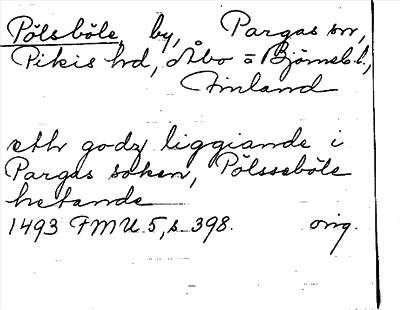 Pölsböle, by, Pargas sn,
Pikis hd, Åbo = Björneb. l.,
Finland
eth godz liggiande i
Pargas soken, Pölsseböle
hetande
1493 FMU 5, s. 398. orig.